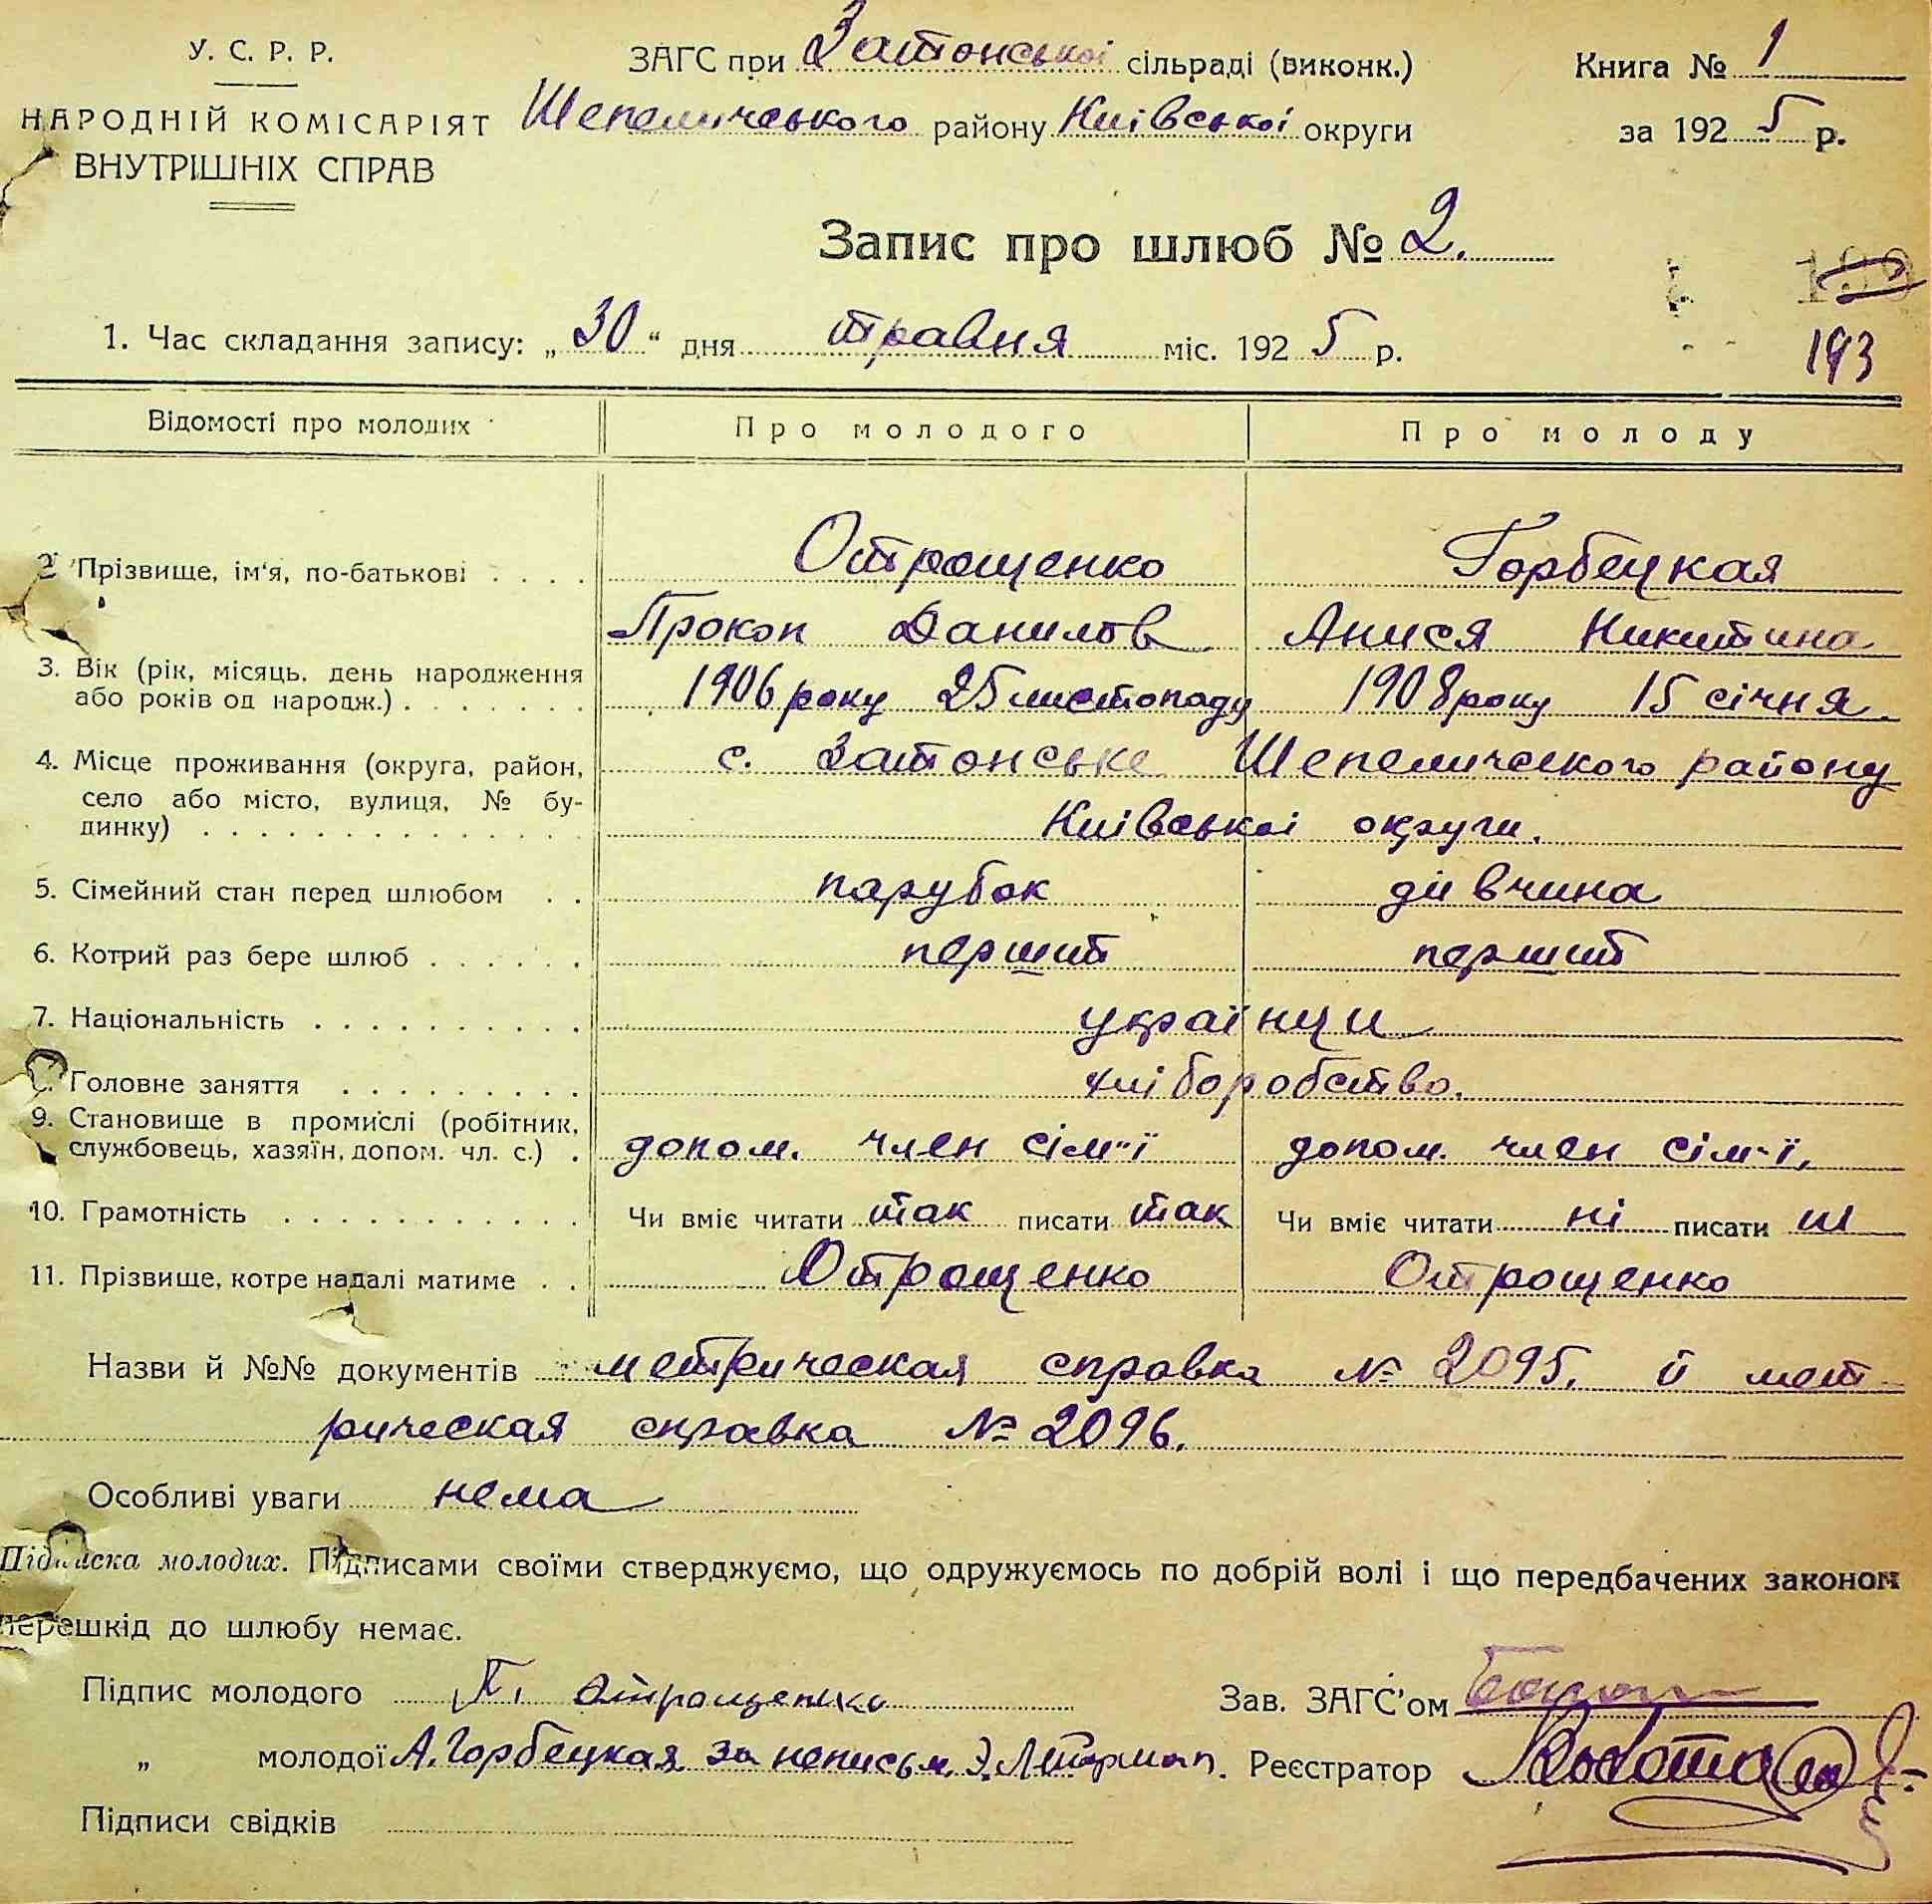 У. С. Р. Р.
НАРОДНІЙ КОМІСАРІЯТ
ВНУТРІШНІХ СПРАВ
ЗАГС при Затонської сільраді (виконк.)
Шепеличського району Київської округи
Книга № 1
за 1925 р.
Запис про шлюб № 2.
193
1. Час складання запису: „30“ дня травня міс. 1925 р.
Відомості про молодих Про молодого Про молоду
2 Прізвище, ім‘я, по-батькові . . . . Острощенко Горбецкая
Прокоп Данилов Анися Никитина
3. Вік (рік, місяць, день народження
або років од народж.) . . . . . . . 1906 року 25 листопаду 1908 року 15 січня.
4. Місце проживання (округа, район, с. Затонське Шепелического району
село або місто, вулиця, № бу-
динку) . . . . . . . . . . . . . . . Київської округи.
5. Сімейний стан перед шлюбом . . парубок дівчина
6. Котрий раз бере шлюб . . . . . . перший перший
7. Національність . . . . . . . . . . українци
Головне заняття . . . . . . . . . хліборобство.
9. Становище в промислі (робітник,
службовець, хазяїн, допом. чл. с.) . допом. член сім"ї допом. член сім"ї,
10. Грамотність . . . . . . . . . . . Чи вміє читати так писати так Чи вміє читати ні писати ні
11. Прізвище, котре надалі матиме . . Острощенко Острощенко
Назви й №№ документів метрическая справка № 2095. й мет
рическая справка № 2096.
Особливі уваги нема
Підписка молодих. Підписами своїми стверджуємо, що одружуємось по добрій волі і що передбачених законом
перешкід до шлюбу немає.
Підпис молодого П. Острощенко Зав. ЗАГС’ом
„ молодої А. Горбецкая за неписьм. Реєстратор
Підписи свідків